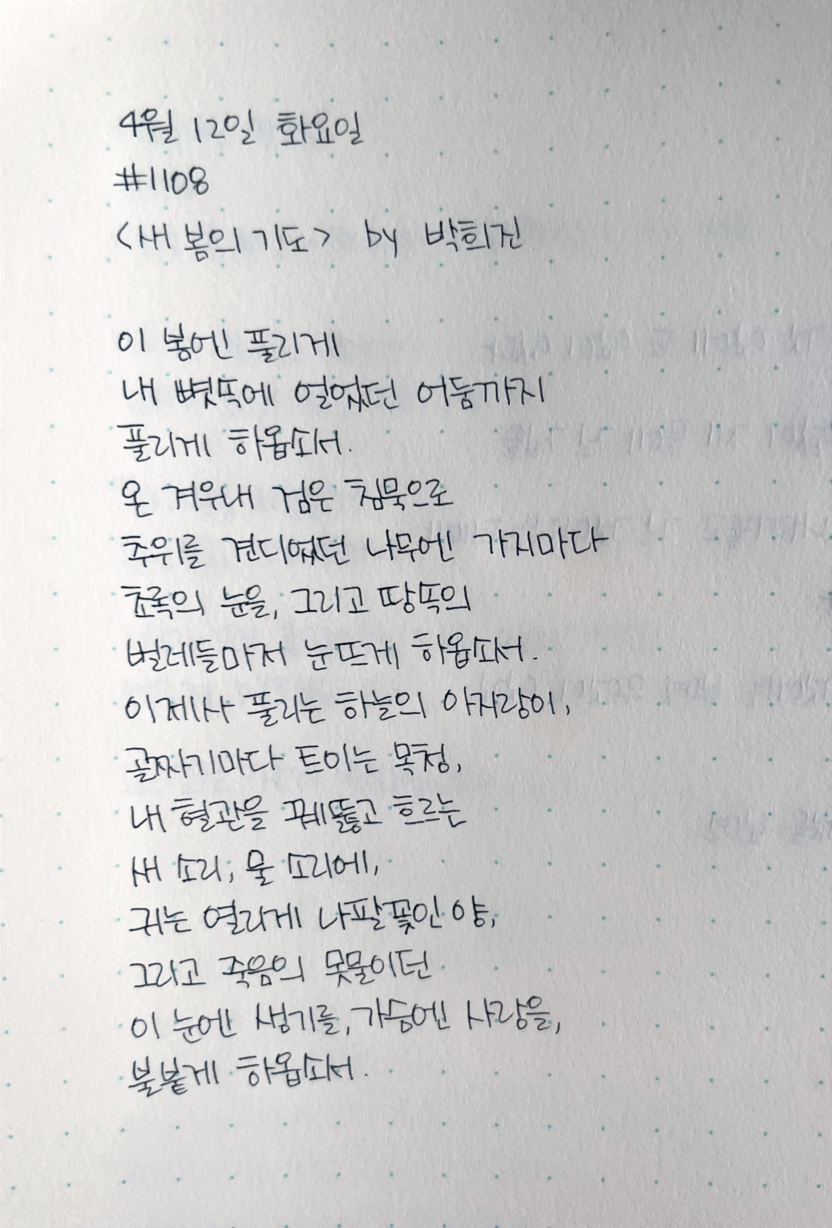 4월 12일 화요일
#1108
<새 봄의 기도> by 박희진
이 봄엔 풀리게
내 뼛속에 얼었던 어둠까지
풀리게 하옵소서.
온 겨우내 검은 침묵으로
추위를 견디었던 나무엔 가지마다
초록의 눈을, 그리고 땅속의
벌레들마저 눈뜨게 하옵소서.
이제사 풀리는 하늘의 아지랑이,
골짜기마다 트이는 목청,
내 혈관을 꿰뚫고 흐르는
새 소리, 물 소리에,
귀는 열리게 나팔꽃인 양,
그리고 죽음의 못물이던
이 눈엔 생기를, 가슴엔 사랑을,
불붙게 하옵소서.